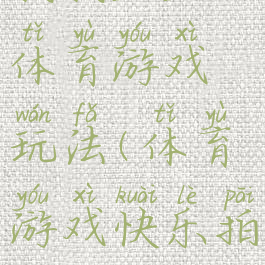 tǐ yù yóu xì
体育游戏
wán fǎ tǐ yù
玩法(体育
yóu xì kuài lè pāi
游戏快乐拍